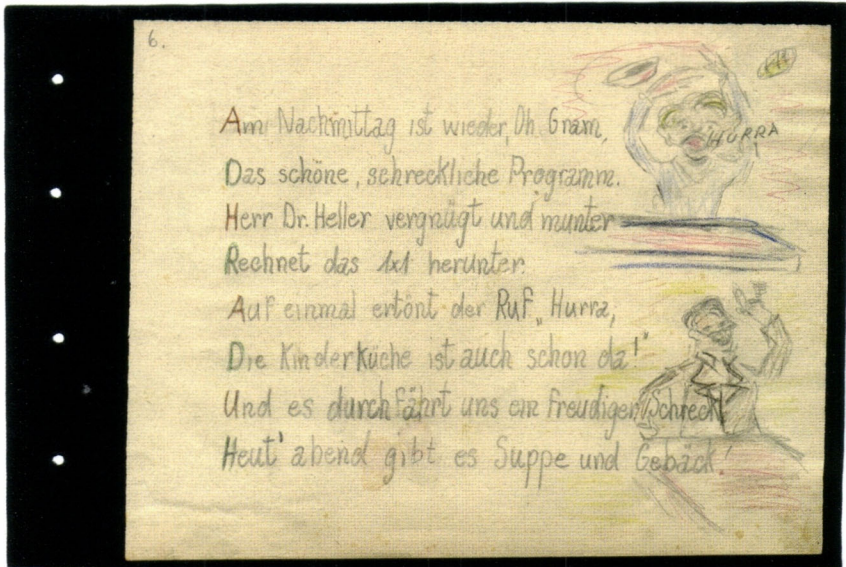 6.
HURRA!
Am Nachmittag ist wieder, Oh Gram,
Das schöne, schreckliche Programm.
Herr Dr. Heller vergnügt und munter
Rechnet das 1x1 herunter.
Auf einmal ertönt der Ruf „Hurra,
Die Kinderküche ist auch schon da!"
Und es durchfährt uns ein freudiger Schreck
Heut' abend gibt es Suppe und Gebäck!